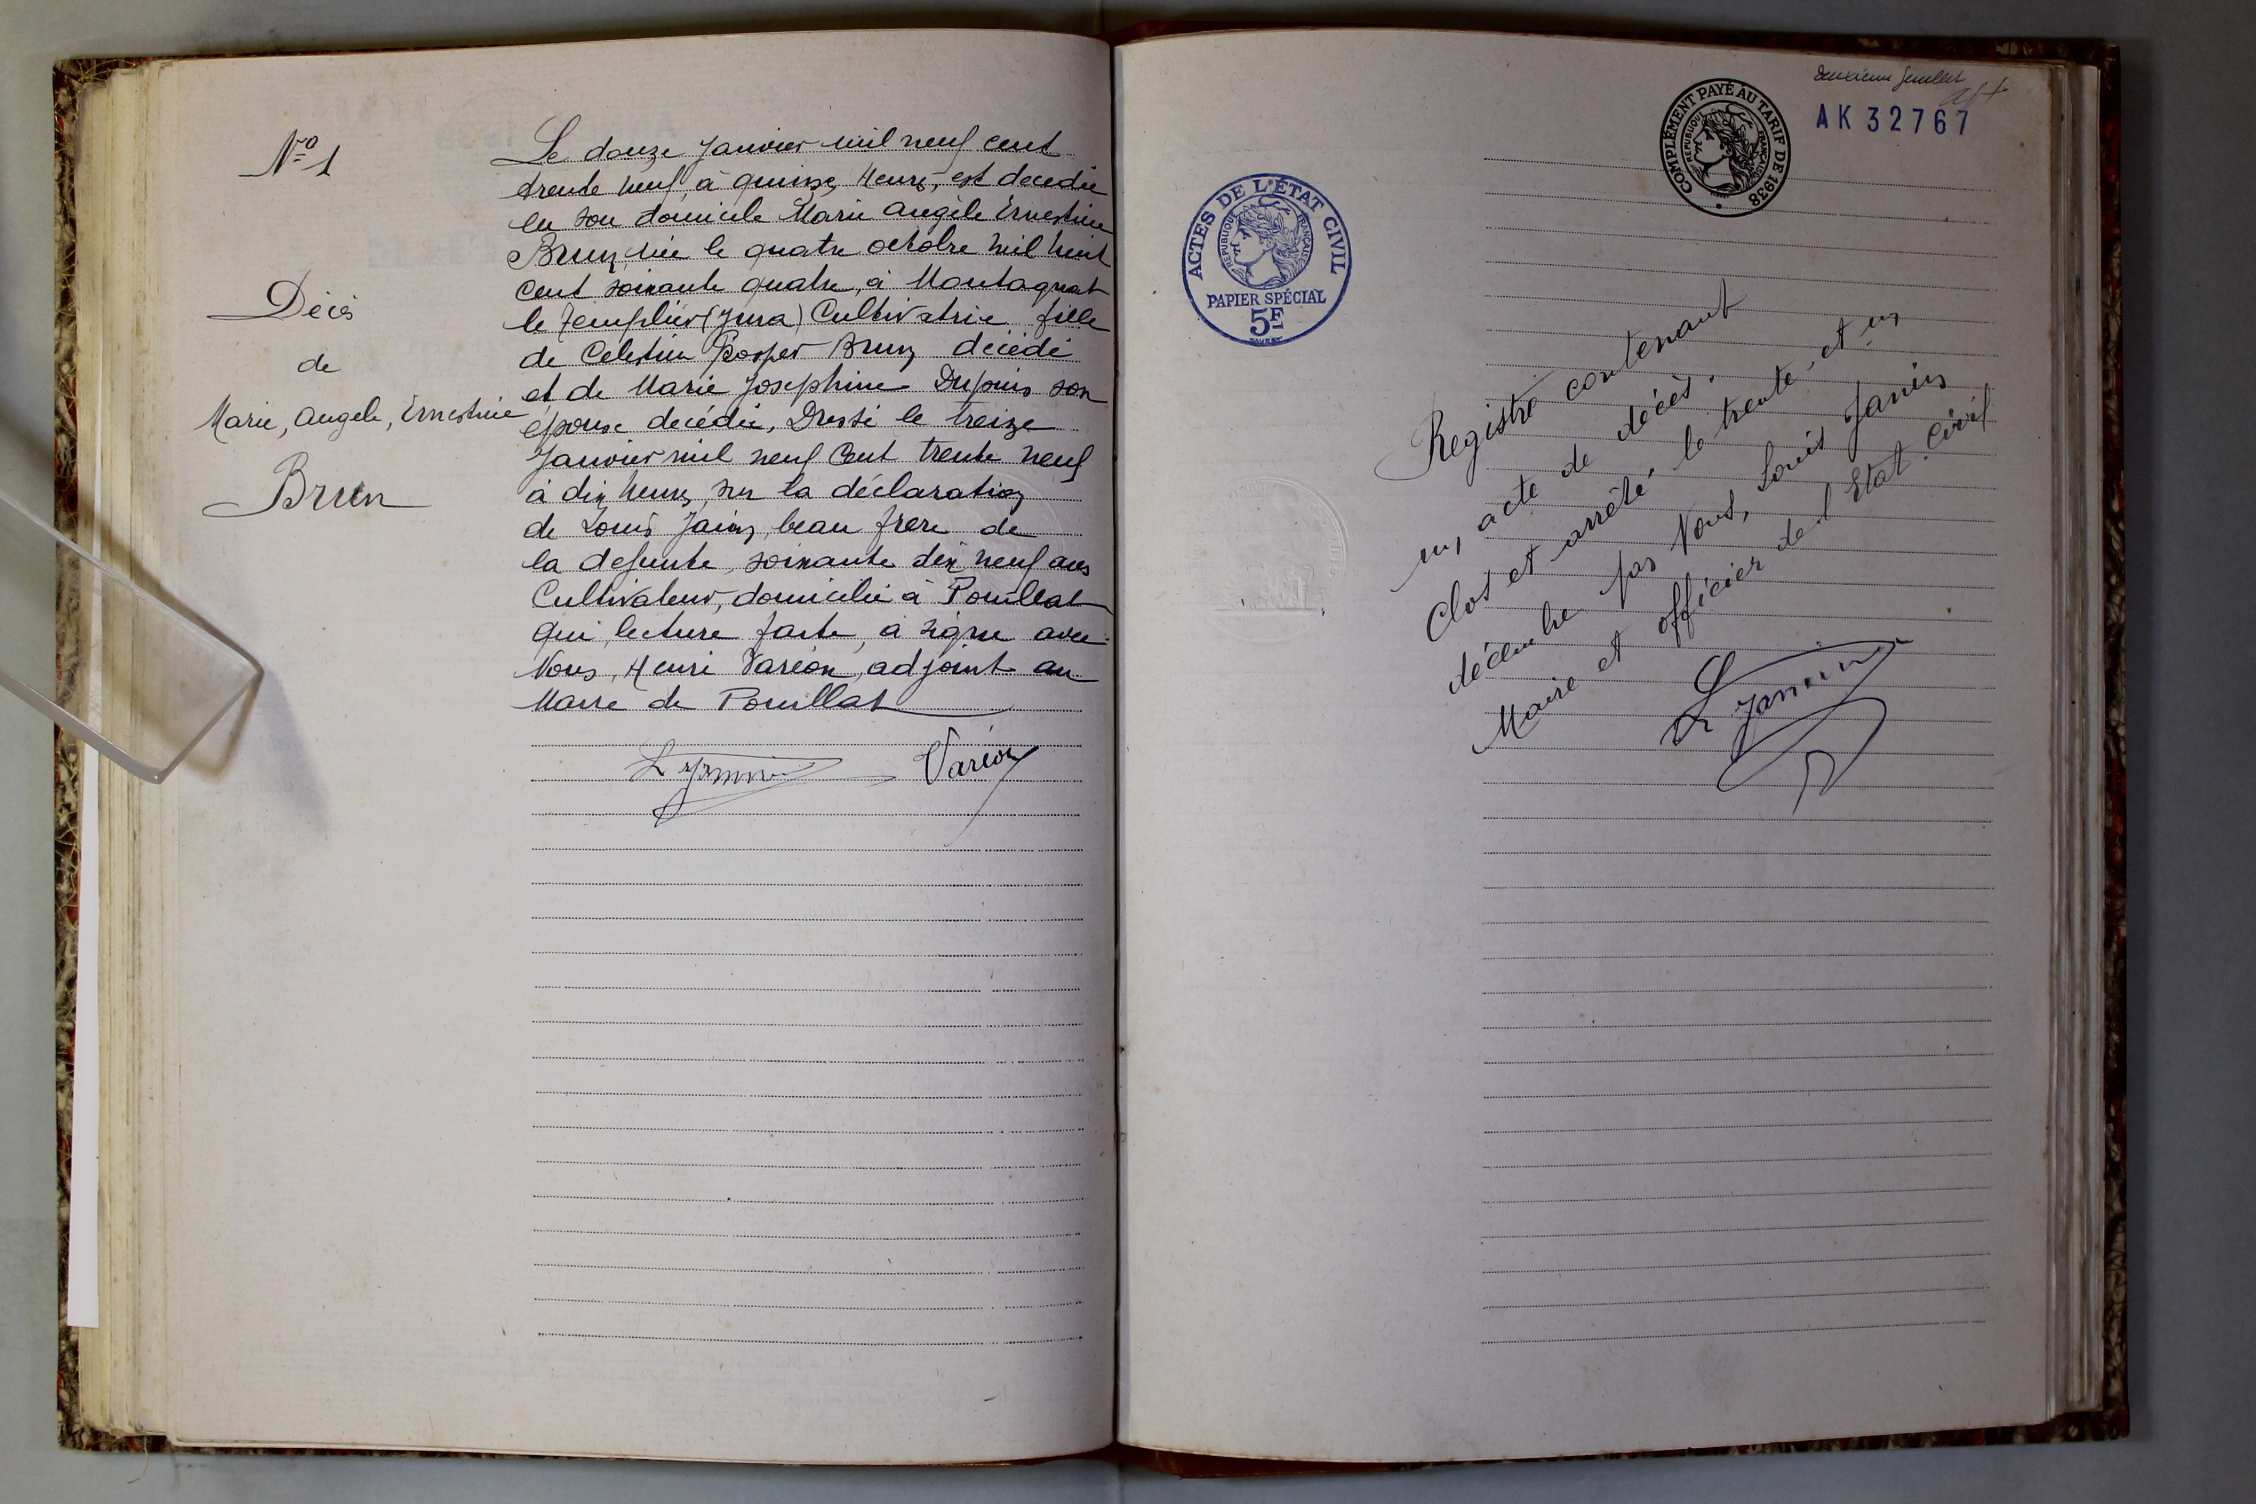 N° 1
Décès
de
Marie, Angèle, Ernestine
Brun
Le douze Janvier mil neuf cent
trente neuf, à quinze Heures, est décédée
en son domicile Marie Angèle Ernestine
Brun, née le quatre octobre mil huit
cent soixante quatre, à Montagnat
le Templier (Jura) Cultivatrice fille
de Célestin Prosper Brun décédé
et de Marie Josephine Dupuis son
épouse décédée, Dressé le treize
Janvier mil neuf Cent trente neuf
à dix heures, sur la déclaration
de Louis Janin, beau frère de
la defunte, soixante dix neuf ans
Cultivateur, domicilié à Pouillat
qui, lecture faite, à signé avec
Nous, Henri Varéon, adjoint au
Maire de Pouillat
L Janin Varéon
deuxième feuillet
COMPLÉMENT PAYÉ AU TARIF DE 1938
RÉPUBLIQUE FRANÇAISE
AK 32767
ACTES DE L'ÉTAT CIVIL
RÉPUBLIQUE FRANÇAISE
PAPIER SPÉCIAL
5F
Registre contenant
un acte de décès.
Clos et arrêté le trente et un
décembre par Nous, Louis Janin
Maire et officier de l'Etat. Civil
L Janin